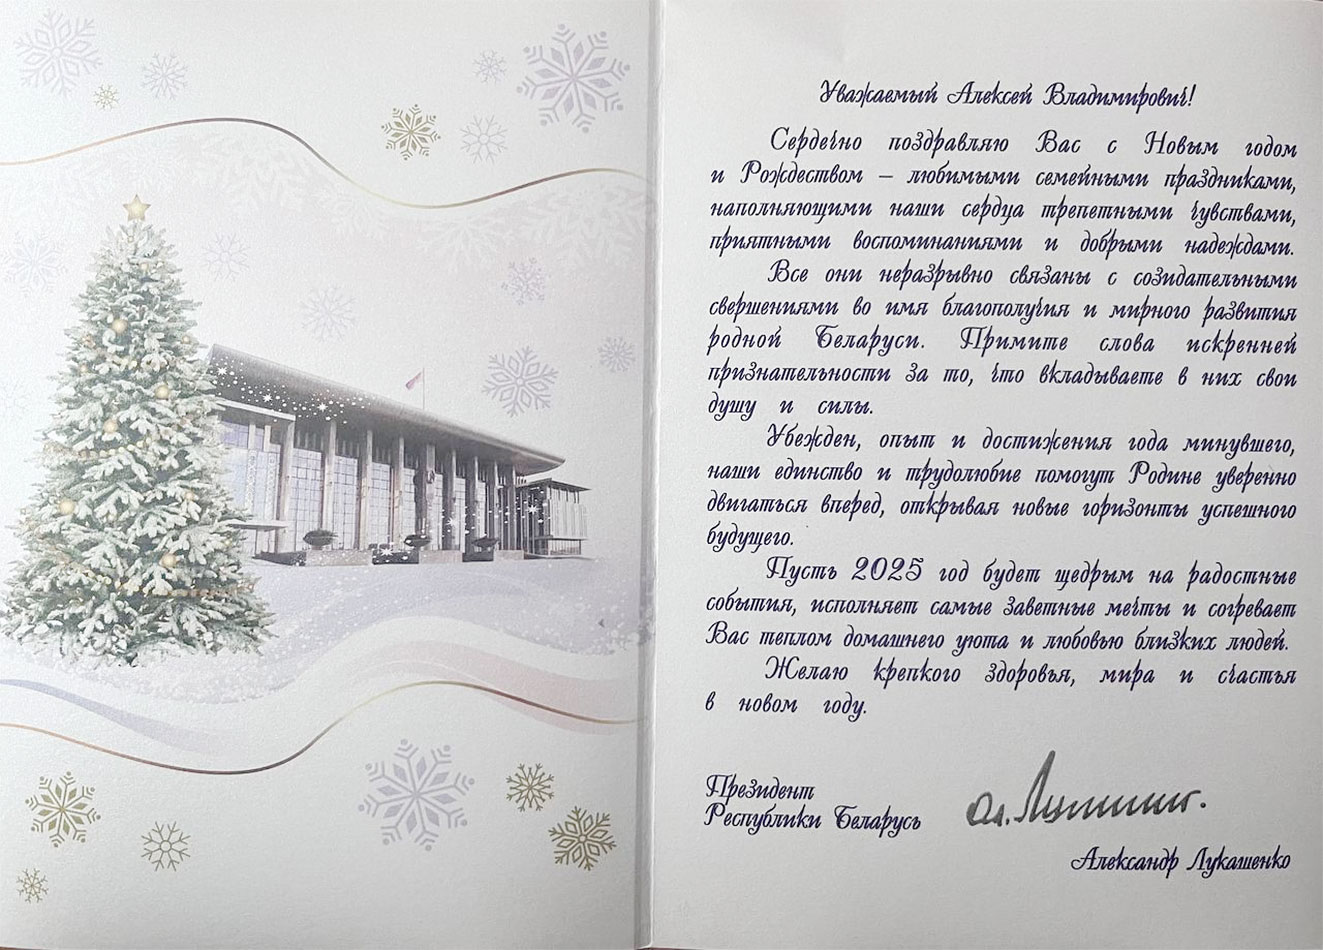 Уважаемый Алексей Владимирович!
Сердечно поздравляю Вас с Новым годом
и Рождеством – любимыми семейными праздниками,
наполняющими наши сердца трепетными чувствами,
приятными воспоминаниями и добрыми надеждами.
Все они неразрывно связаны с созидательными
свершениями во имя благополучия и мирного развития
родной Беларуси. Примите слова искренней
признательности за то, что вкладываете в них свои
душу и силы.
Убежден, опыт и достижения года минувшего,
наши единство и трудолюбие помогут Родине уверенно
двигаться вперед, открывая новые горизонты успешного
будущего.
Пусть 2025 год будет щедрым на радостные
события, исполняет самые заветные мечты и согревает
Вас теплом домашнего уюта и любовью близких людей.
Желаю крепкого здоровья, мира и счастья
в новом году.
Президент
Республики Беларусь
Александр Лукашенко